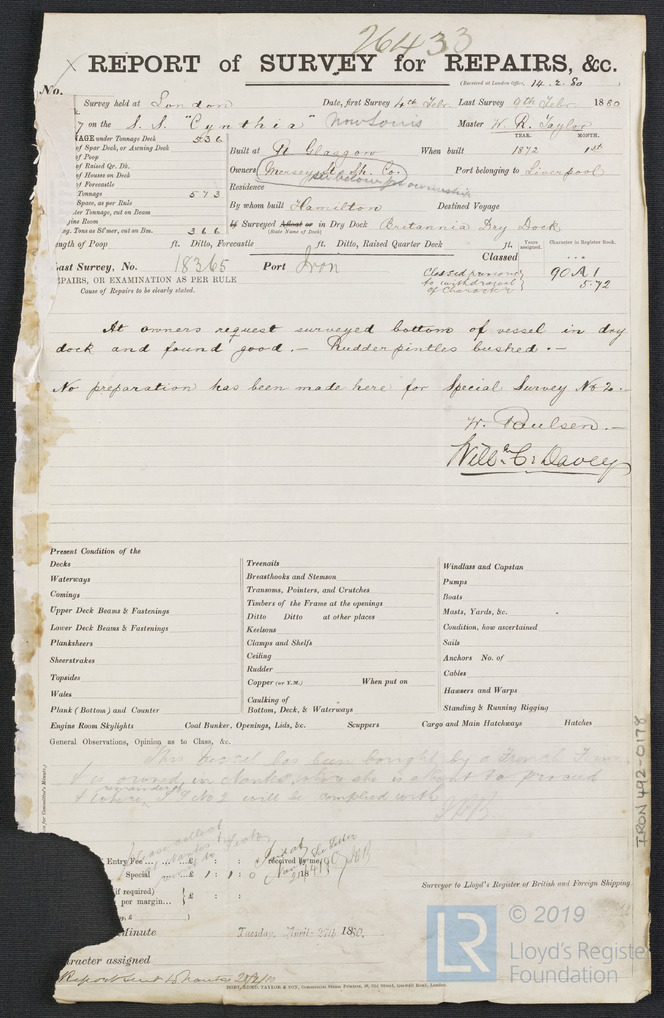 26433
× REPORT of SURVEY for REPAIRS, &c.
(Received at London Office, 14.2.80
No.
Survey held at London Date, first Survey 4th Febr. Last Survey 9th Febr. 1880
on the S.S. "Cynthia" Now Louis Master W. R. Taylor
AGE under Tonnage Deck 536 YEAR. MONTH.
of Spar Deck, or Awning Deck Built at Glasgow When built 1872
of Poop
of Raised Qr. Dk. Owners Mersey St. Sh. Co. Port belonging to Liverpool
of Houses on Deck
of Forecastle Residence
Tonnage 573
Space, as per Rule By whom built Hamilton Destined Voyage
ter Tonnage, cut on Beam
gine Room If Surveyed Afloat or in Dry Dock Britannia Dry Dock
g. Tons as St'mer, cut on Bm. 366 (State Name of Dock)
ngth of Poop ft. Ditto, Forecastle ft. Ditto, Raised Quarter Deck ft. Years assigned. Character in Register Book.
Classed ...
ast Survey, No. 18365 Port Iron Classed previous to withdrawal of Character 90 A 1
5.72
EPAIRS, OR EXAMINATION AS PER RULE
Cause of Repairs to be clearly stated.
At owners request surveyed bottom of vessel in dry
dock and found good.— Rudder pintles bushed.—
No preparation has been made here for Special Survey No 2.—
W. Paulsen.—
Will. C. Davey
Present Condition of the
Decks
Waterways
Comings
Upper Deck Beams & Fastenings
Lower Deck Beams & Fastenings
Planksheers
Sheerstrakes
Topsides
Wales
Plank (Bottom) and Counter
Treenails
Breasthooks and Stemson
Transoms, Pointers, and Crutches
Timbers of the Frame at the openings
Ditto Ditto at other places
Keelsons
Clamps and Shelfs
Ceiling
Rudder
Copper (or Y.M.) When put on
Caulking of
Bottom, Deck, & Waterways
Windlass and Capstan
Pumps
Boats
Masts, Yards, &c.
Condition, how ascertained
Sails
Anchors No. of
Cables
Hawsers and Warps
Standing & Running Rigging
Engine Room Skylights Coal Bunker, Openings, Lids, &c. Scuppers Cargo and Main Hatchways Hatches
General Observations, Opinion as to Class, &c.
This Vessel has been bought by a French Firm
& is owned in Nantes, where she is about to proceed
& where No 2 will be complied with
Entry Fee ... £ : : received by me,
Special £ 1 : 1 : 0
if required)
per margin... £ : :
Surveyor to Lloyd's Register of British and Foreign Shipping.
Minute Tuesday, April 27th 1880.
aracter assigned
Report sent to Nantes
IRON 492-0178
LR © 2019
Lloyd's Register
Foundation